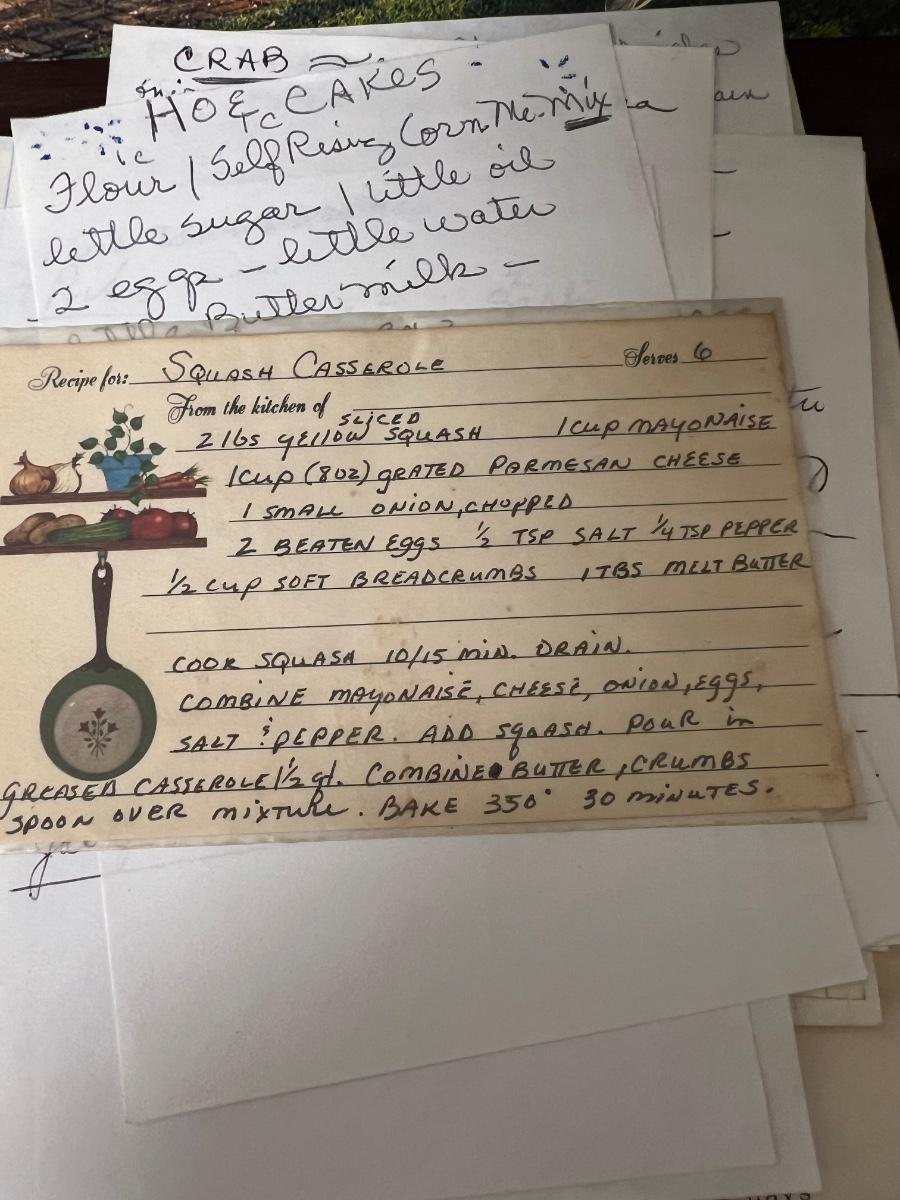 CRAB
HOE CAKES
1c
1c
Flour / Self Rising Corn Me. Mix
little sugar / little oil
2 eggs - little water
Buttermilk -
Recipe for: SQUASH CASSEROLE Serves 6
From the kitchen of
SLICED
2 lbs YELLOW SQUASH 1 CUP MAYONAISE
1 CUP (8OZ) GRATED PARMESAN CHEESE
1 SMALL ONION, CHOPPED
2 BEATEN EGGS ½ TSP SALT ¼ TSP PEPPER
½ CUP SOFT BREADCRUMBS 1 TBS MELT BUTTER
COOK SQUASH 10/15 MIN. DRAIN.
COMBINE MAYONAISE, CHEESE, ONION, EGGS,
SALT & PEPPER. ADD SQUASH. POUR in
GREASED CASSEROLE 1½ qt. COMBINE BUTTER, CRUMBS
SPOON OVER MIXTURE. BAKE 350° 30 MINUTES.